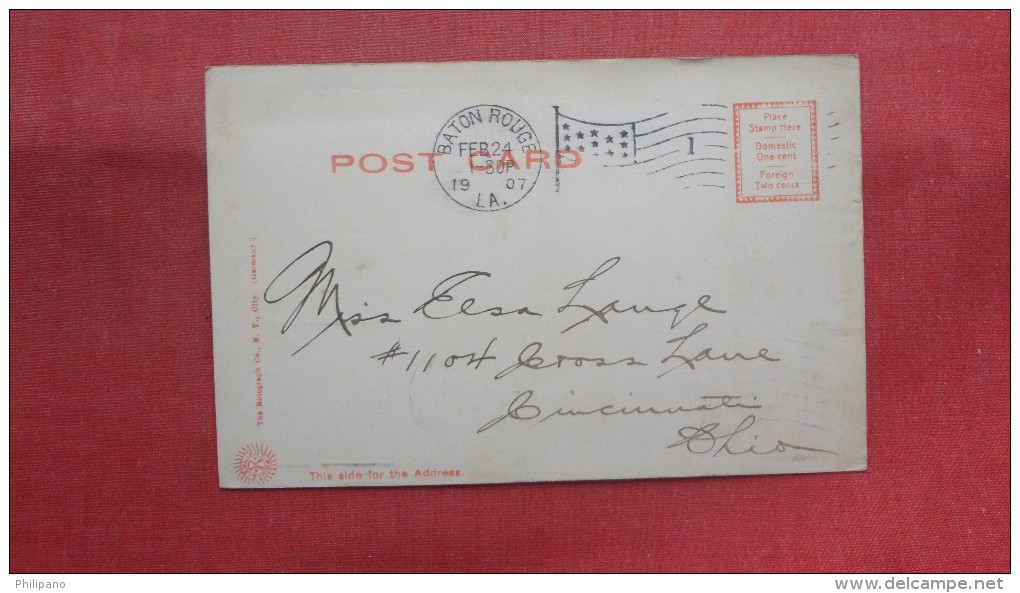 BATON ROUGE
FEB 24
1-30P
1907
LA.
1
POST CARD
Place
Stamp Here
Domestic
One cent
Foreign
Two cents
The Rotograph Co., N. Y., City. (Germany.)
Miss Elsa Lange
#1104 Cross Lane
Cincinnati
Ohio
This side for the Address.
Philipano
www.delcampe.net